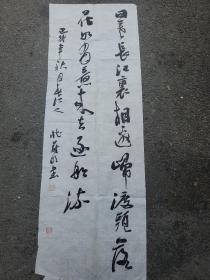 日暮長江裏相邀歸渡頭落
花如有意来去逐船流
年秋月